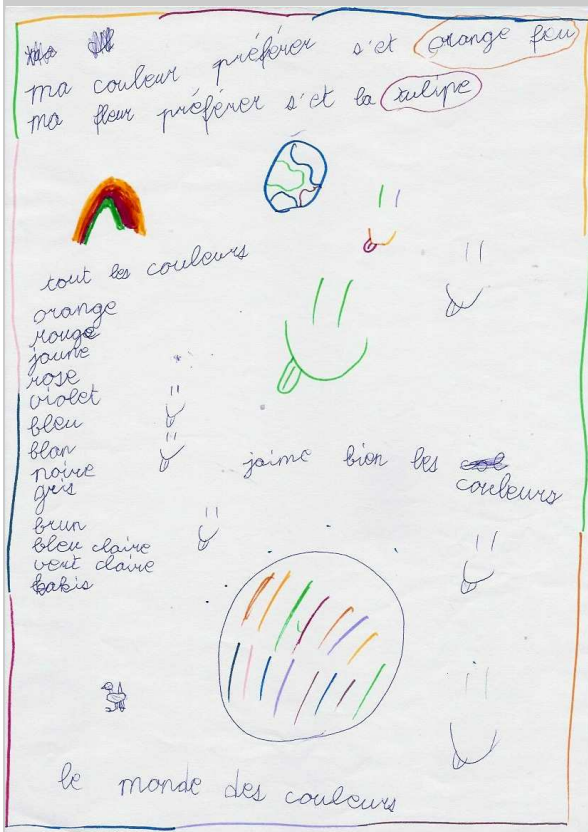 ma couleur préférer s'et orange feu
ma fleur préférer s'et la tulipe
tout les couleurs
orange
rouge
jaune
rose
violet
bleu
blan
noire
gris
brun
bleu claire
vert claire
kakis
jaime bien les
couleurs
le monde des couleurs